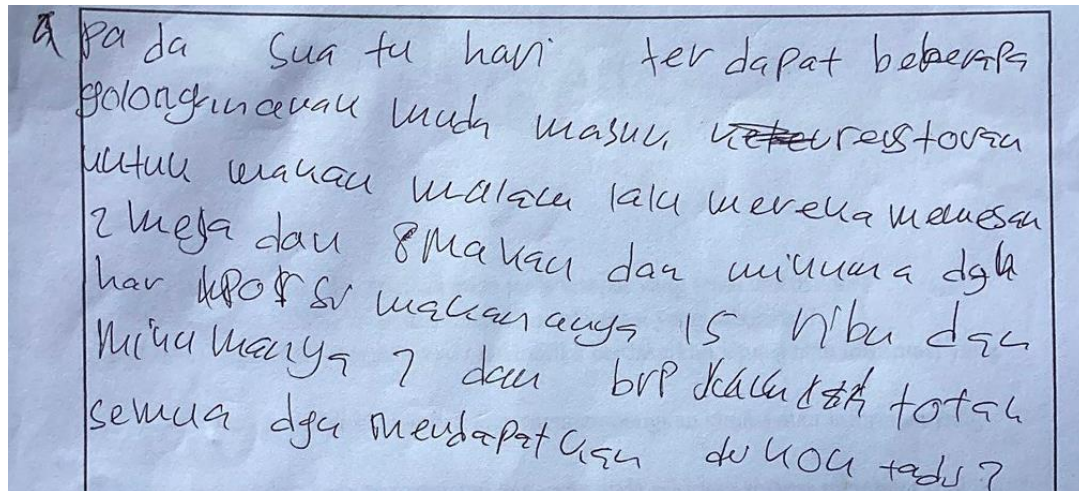 a pada suatu hari terdapat beberapa
golongan anak muda masuk restoran
untuk makan malam lalu mereka memesan
2 meja dan 8 makan dan minuma dgn
har porsi makananya 15 ribu dan
minumanya 7 dan brp total
semua dgn mendapatkan diskon tadi?